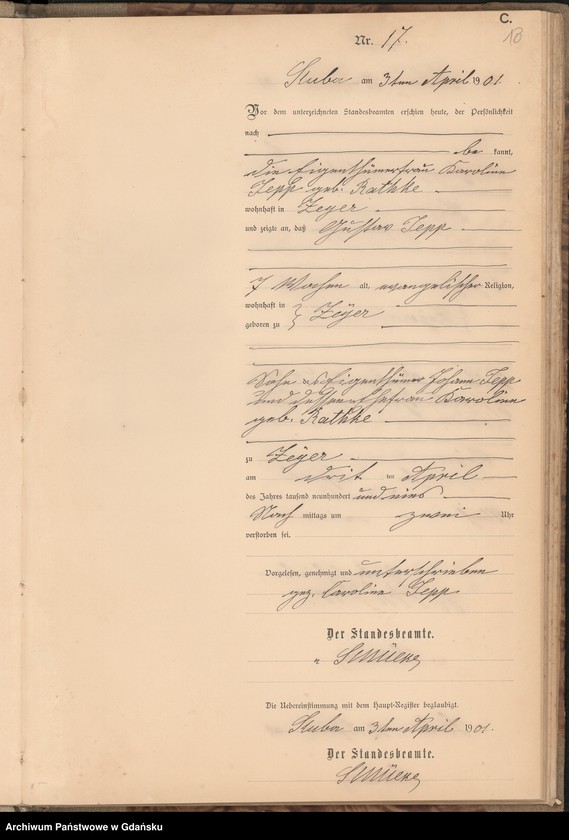 C.
13
Nr. 17.
Stuba am 3ten April 1901.
Vor dem unterzeichneten Standesbeamten erschien heute, der Persönlichkeit
nach
be kannt,
die Eigenthümerfrau Karoline
Jepp geb. Rathke
wohnhaft in Zeyer
und zeigte an, daß Gustav Jepp
7 Wochen alt, evangelischer Religion,
wohnhaft in
geboren zu Zeyer
Sohn des Eigenthümer Johann Jepp
und dessen Ehefrau Karoline
geb. Rathke
zu Zeyer
am drit ten April
des Jahres tausend neunhundert und eins
Nach mittags um zwei Uhr
verstorben sei.
Vorgelesen, genehmigt und unterschrieben
gez. Caroline Jepp
Der Standesbeamte.
Die Uebereinstimmung mit dem Haupt-Register beglaubigt.
Stuba am 3ten April 1901.
Der Standesbeamte.
Archiwum Państwowe w Gdańsku